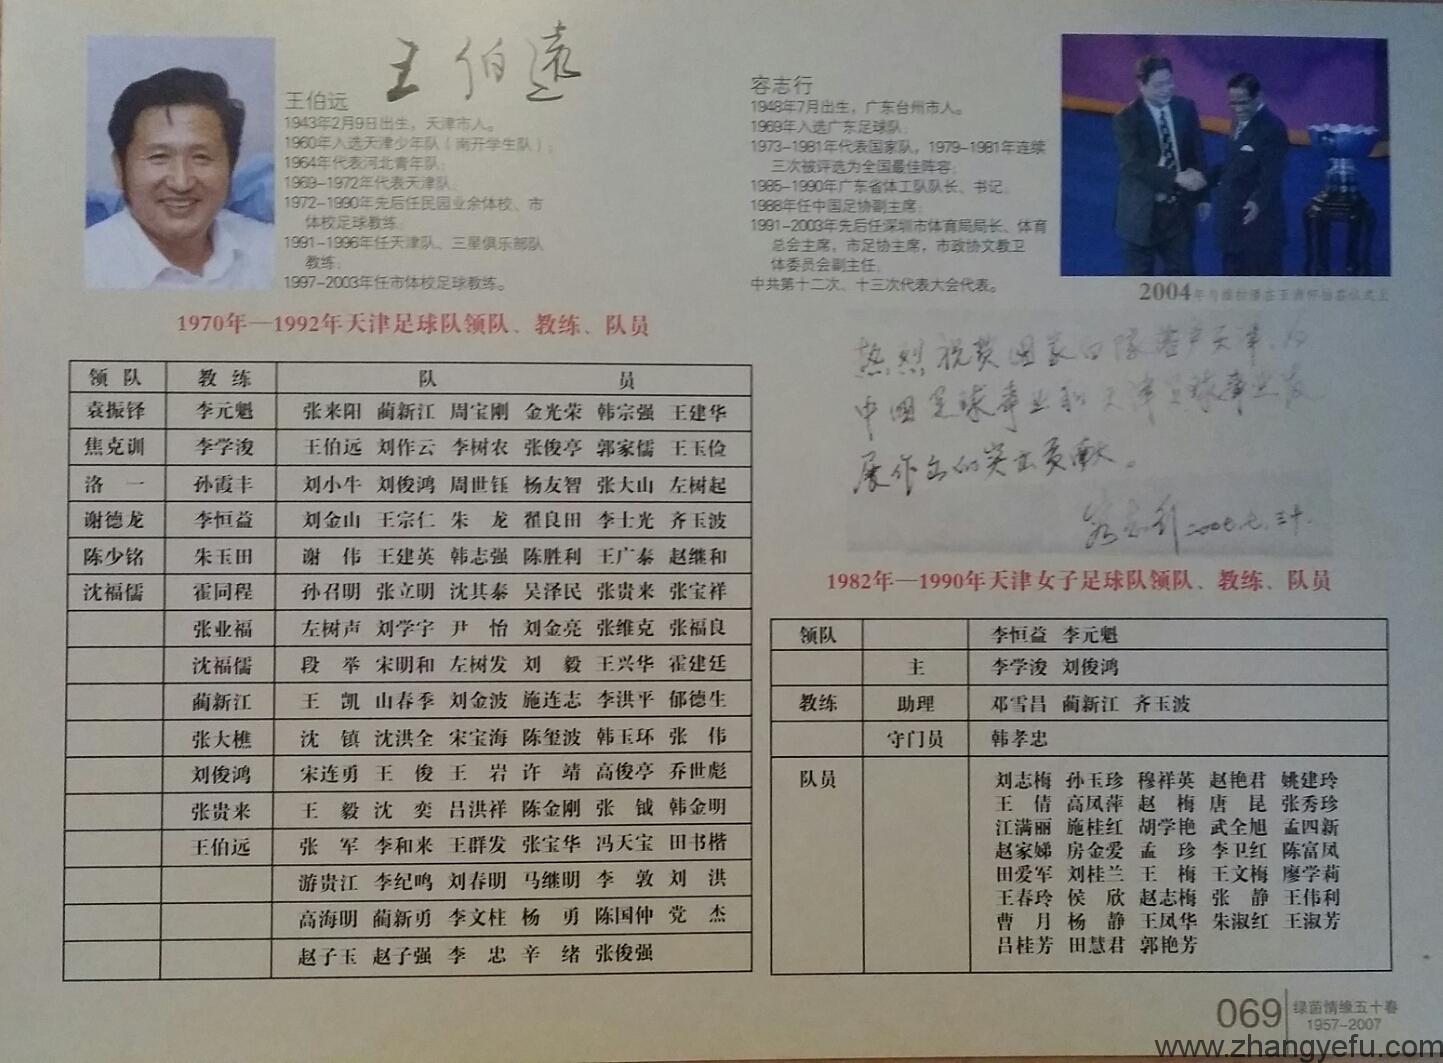 王伯遠
王伯远
1943年2月9日出生，天津市人。
1960年入选天津少年队（南开学生队）；
1964年代表河北青年队；
1969-1972年代表天津队；
1972-1990年先后任民园业余体校、市
体校足球教练；
1991-1996年任天津队、三星俱乐部队
教练；
1997-2003年任市体校足球教练。
容志行
1948年7月出生，广东台州市人。
1969年入选广东足球队；
1973-1981年代表国家队，1979-1981年连续
三次被评选为全国最佳阵容；
1985-1990年广东省体工队队长、书记；
1988年任中国足协副主席；
1991-2003年先后任深圳市体育局局长、体育
总会主席，市足协主席，市政协文教卫
体委员会副主任；
中共第十二次、十三次代表大会代表。
2004
热烈祝贺国家白隊落户天津，为
中国足球事业和天津足球事业发
展作出的突出贡献。
容志行
1970年—1992年天津足球队领队、教练、队员
领 队 教 练 队 员
袁振铎 李元魁 张来阳 蔺新江 周宝刚 金光荣 韩宗强 王建华
焦克训 李学浚 王伯远 刘作云 李树农 张俊亭 郭家儒 王玉俭
洛 一 孙霞丰 刘小牛 刘俊鸿 周世钰 杨友智 张大山 左树起
谢德龙 李恒益 刘金山 王宗仁 朱 龙 翟良田 李士光 齐玉波
陈少铭 朱玉田 谢 伟 王建英 韩志强 陈胜利 王广泰 赵继和
沈福儒 霍同程 孙召明 张立明 沈其泰 吴泽民 张贵来 张宝祥
张业福 左树声 刘学宇 尹 怡 刘金亮 张维克 张福良
沈福儒 段 举 宋明和 左树发 刘 毅 王兴华 霍建廷
蔺新江 王 凯 山春季 刘金波 施连志 李洪平 郁德生
张大樵 沈 镇 沈洪全 宋宝海 陈玺波 韩玉环 张 伟
刘俊鸿 宋连勇 王 俊 王 岩 许 靖 高俊亭 乔世彪
张贵来 王 毅 沈 奕 吕洪祥 陈金刚 张 钺 韩金明
王伯远 张 军 李和来 王群发 张宝华 冯天宝 田书楷
游贵江 李纪鸣 刘春明 马继明 李 敦 刘 洪
高海明 蔺新勇 李文柱 杨 勇 陈国仲 党 杰
赵子玉 赵子强 李 忠 辛 绪 张俊强
1982年—1990年天津女子足球队领队、教练、队员
领队 李恒益 李元魁
主 李学浚 刘俊鸿
教练 助理 邓雪昌 蔺新江 齐玉波
守门员 韩孝忠
队员 刘志梅 孙玉珍 穆祥英 赵艳君 姚建玲
王 倩 高凤萍 赵 梅 唐 昆 张秀珍
江满丽 施桂红 胡学艳 武全旭 孟四新
赵家娣 房金爱 孟 珍 李卫红 陈富凤
田爱军 刘桂兰 王 梅 王文梅 廖学莉
王春玲 侯 欣 赵志梅 张 静 王伟利
曹 月 杨 静 王凤华 朱淑红 王淑芳
吕桂芳 田慧君 郭艳芳
069 绿茵情缘五十春
1957-2007
www.zhangyefu.com